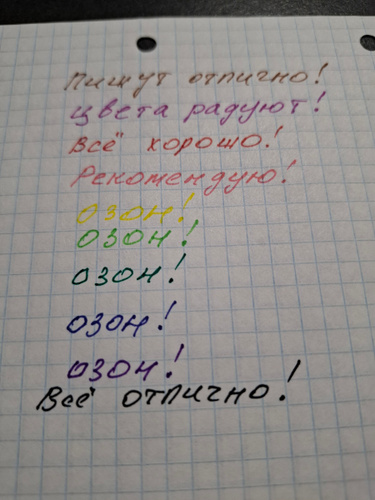 Пишут отлично!
Цвета радуют!
Всё хорошо!
Рекомендую!
ОЗОН!
ОЗОН!
ОЗОН!
ОЗОН!
ОЗОН!
Всё отлично!